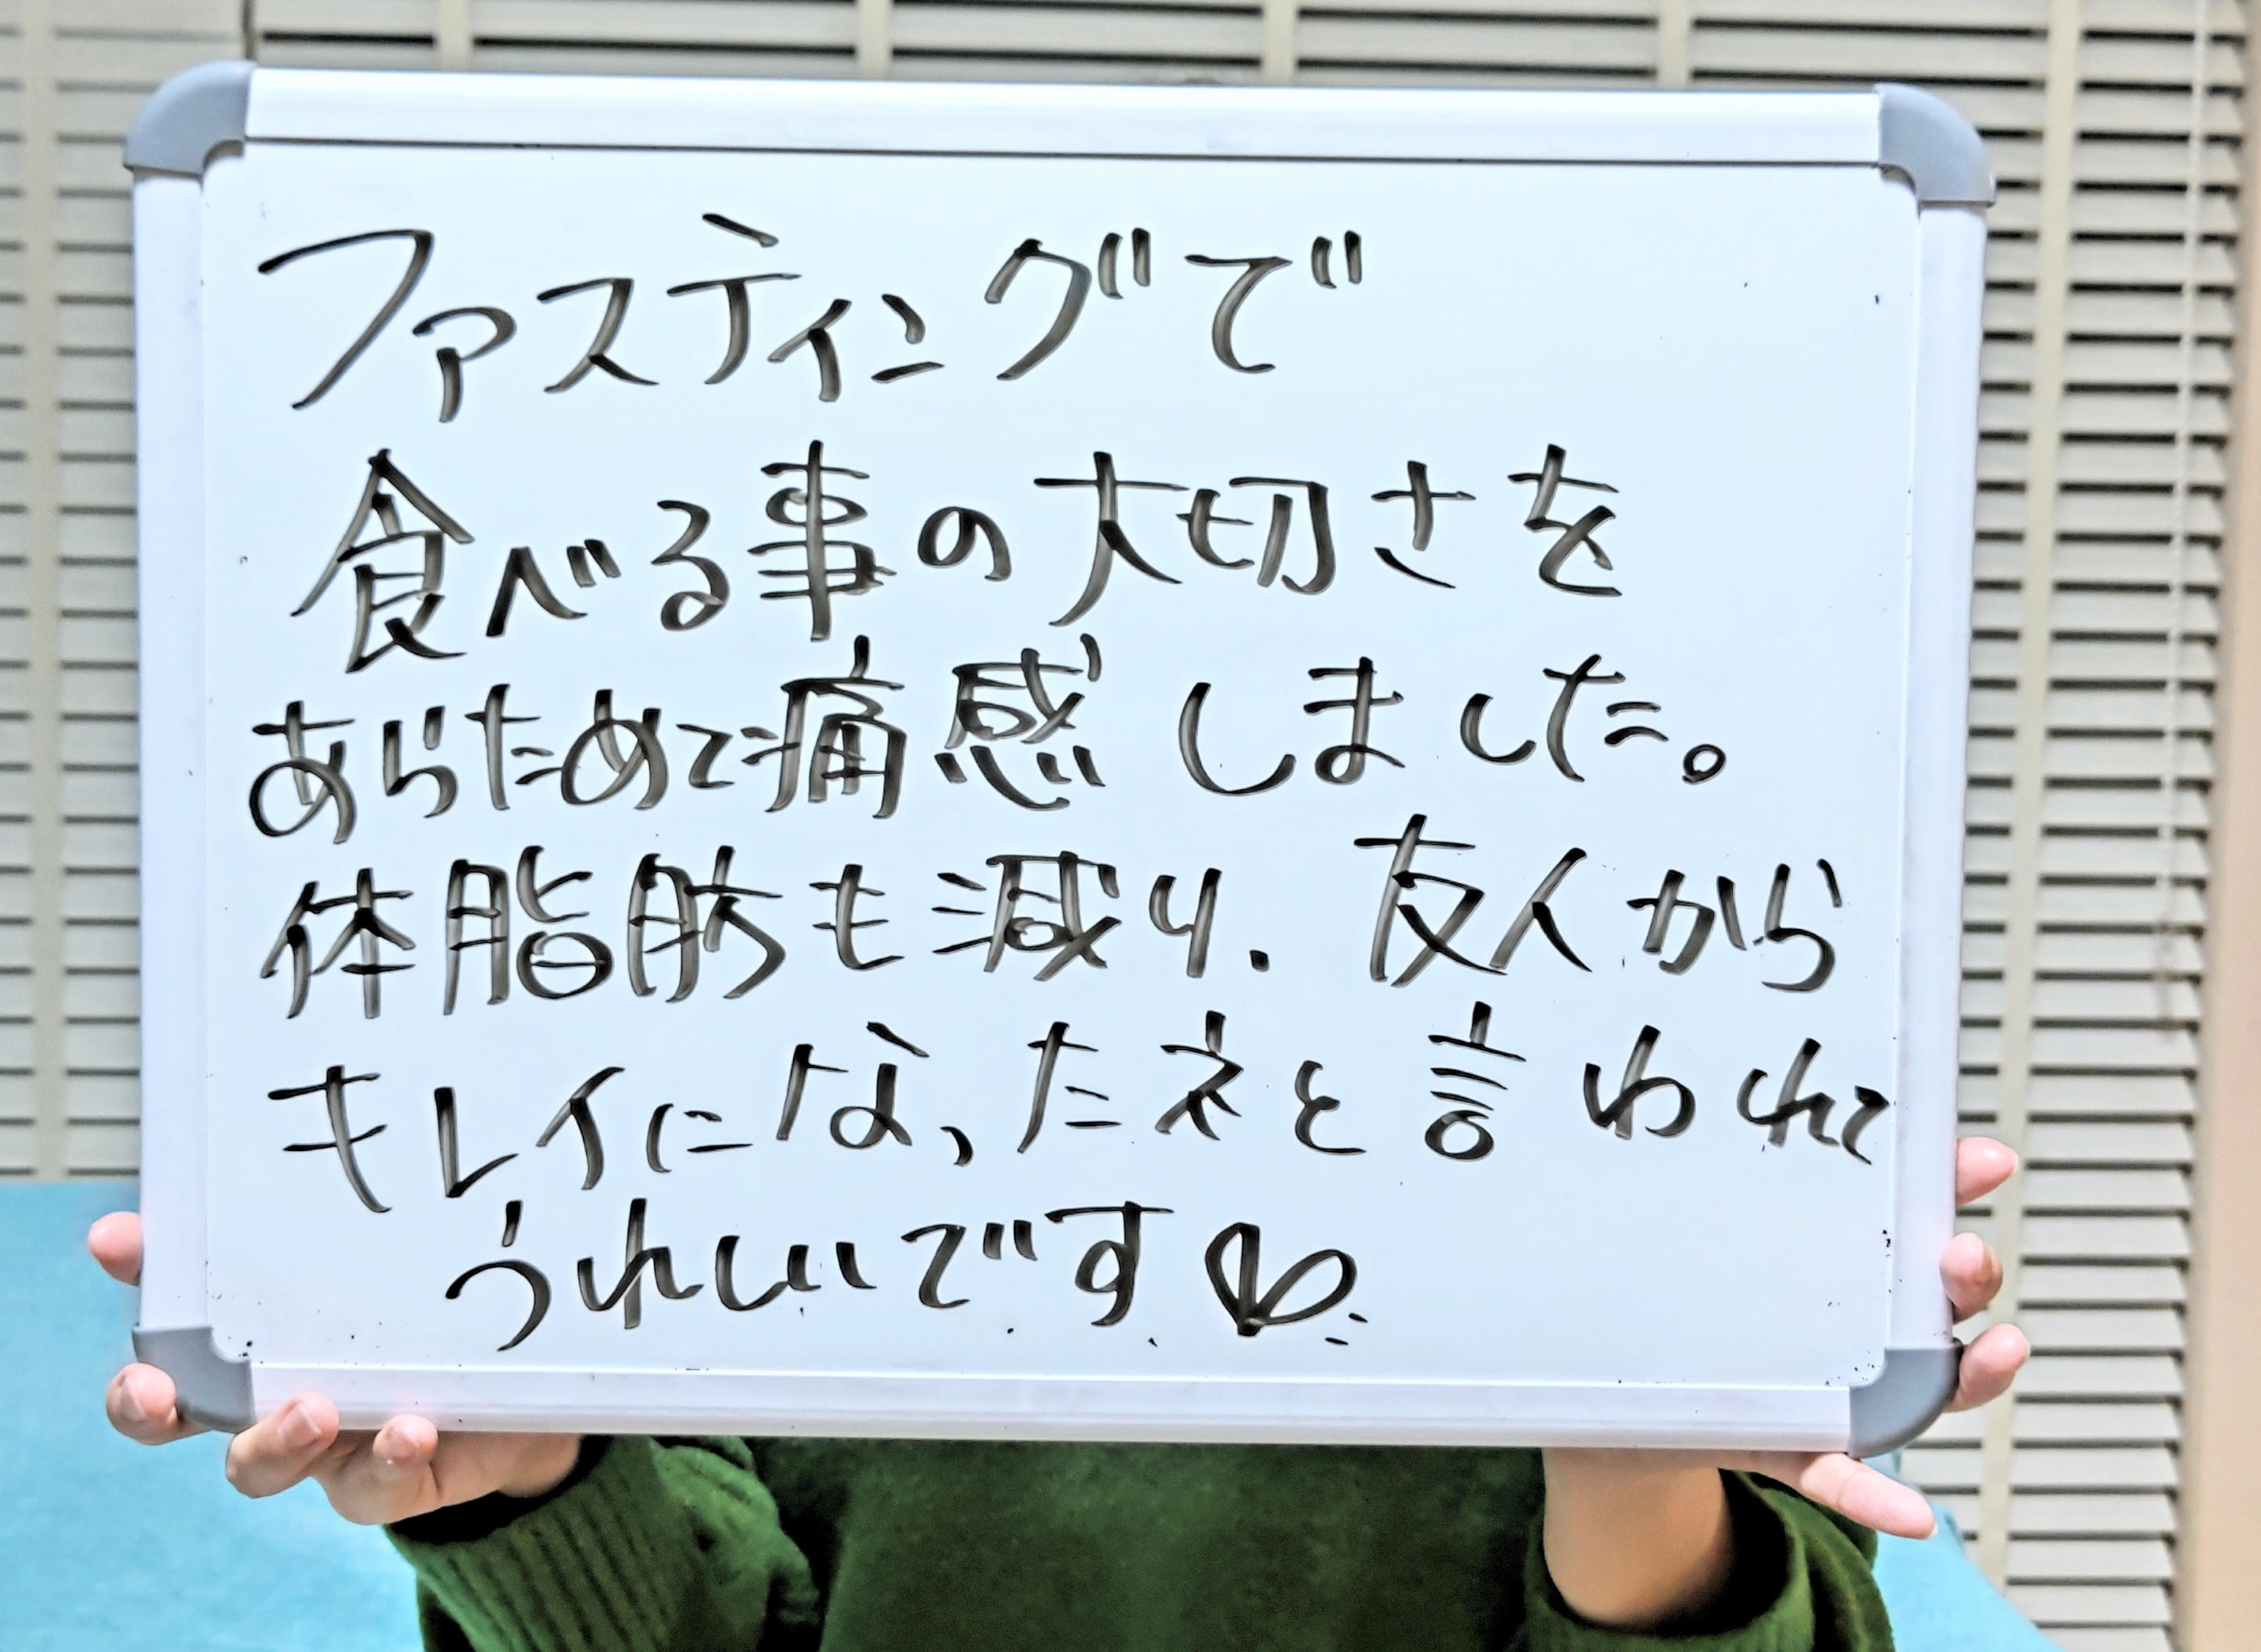 ファスティングで
食べる事の大切さを
あらためて痛感しました。
体脂肪も減り、友人から
キレイになったネと言われて
うれしいです♡